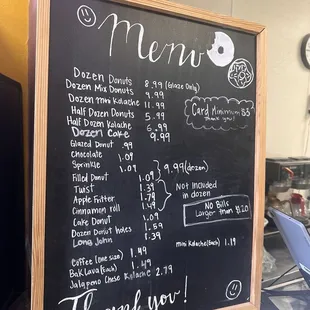 Menu
Dozen Donuts 8.99 (Glaze Only)
Dozen Mix Donuts 9.99
Dozen mini Kolache 11.99
Half Dozen Donuts 5.99
Half Dozen Kolache 6.99
Dozen Cake 9.99
Card Minimum $5
Glazed Donut .99
Chocolate 1.09
Sprinkle 1.09
9.99 (dozen)
Filled Donut 1.39
Twist 1.79
Apple Fritter
Cinnamon roll 1.49
Not Included
in dozen
Cake Donut 1.09
Dozen Donut holes 1.59
Long John 1.39
No Bills
Larger than $20
mini Kolache (Each) 1.19
Coffee (one size) 1.49
Baklava (Each) 1.99
Jalapeno Cheese Kolache 2.79
Thank you!